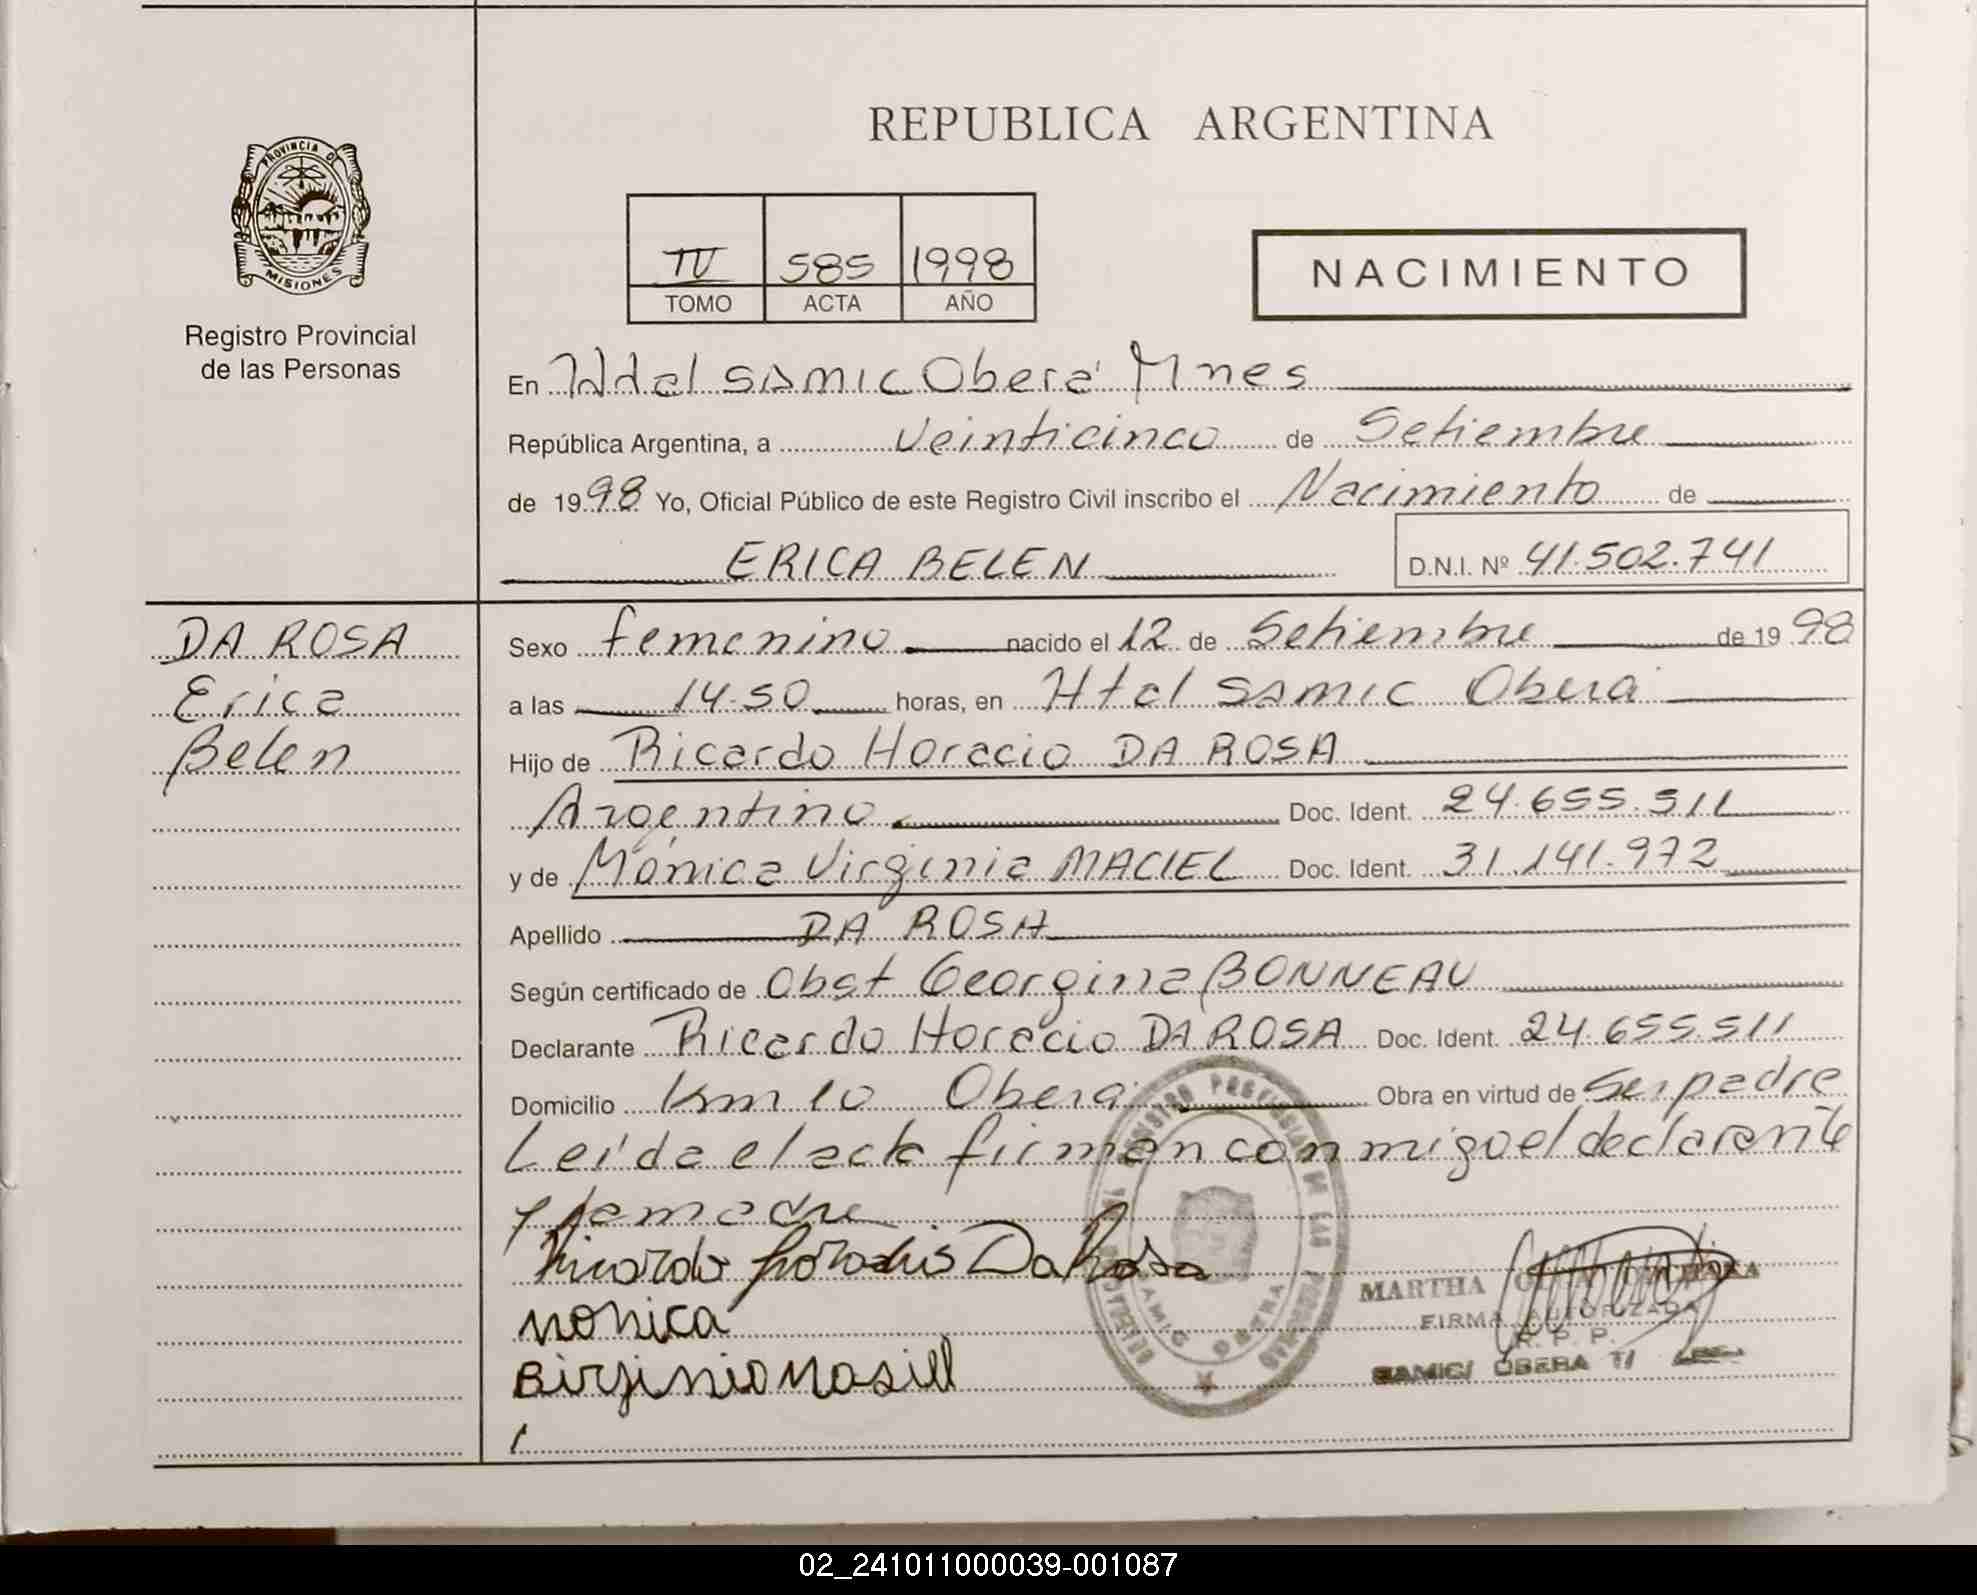 REPUBLICA ARGENTINA
PROVINCIA DE
MISIONES
Registro Provincial
de las Personas
IV 585 1998
TOMO ACTA AÑO
NACIMIENTO
En Htal SAMIC Oberá Mnes
República Argentina, a Veinticinco de Setiembre
de 1998 Yo, Oficial Público de este Registro Civil inscribo el Nacimiento de
ERICA BELEN D.N.I. Nº 41.502.741
DA ROSA
Erica
Belen
Sexo femenino nacido el 12 de Setiembre de 1998
a las 14.50 horas, en Htal SAMIC Oberá
Hijo de Ricardo Horacio DA ROSA
Argentino Doc. Ident. 24.655.511
y de Mónica Virginia MACIEL Doc. Ident. 31.141.972
Apellido DA ROSA
Según certificado de Obst Georgina BONNEAU
Declarante Ricardo Horacio DA ROSA Doc. Ident. 24.655.511
Domicilio Km 10 Oberá Obra en virtud de Ser padre
Leída el acta firman conmigo el declarante
y la madre
Ricardo Da Rosa
Monica
MARTHA
FIRMA AUTORIZADA
R. P. P.
SAMIC/ OBERA
02_241011000039-001087